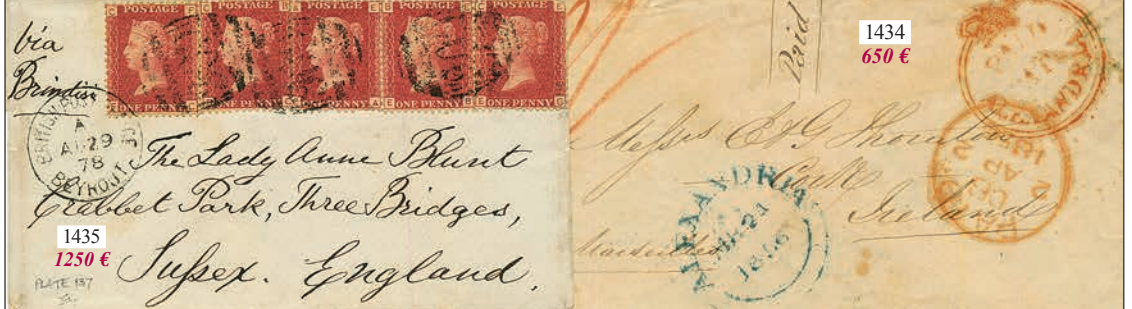 via
Brindisi
POSTAGE
POSTAGE
POSTAGE
POSTAGE
POSTAGE
ONE PENNY
ONE PENNY
ONE PENNY
ONE PENNY
ONE PENNY
BRITISH POST
A
AU 29
78
BEYROUT
The Lady Anne Blunt
Crabbet Park, Three Bridges,
Sussex. England.
1435
1250 €
PLATE 137
Paid
1434
650 €
Messrs
Cork
Ireland
Marseilles
ALEXANDRIA
ALEXANDRIA
PAID